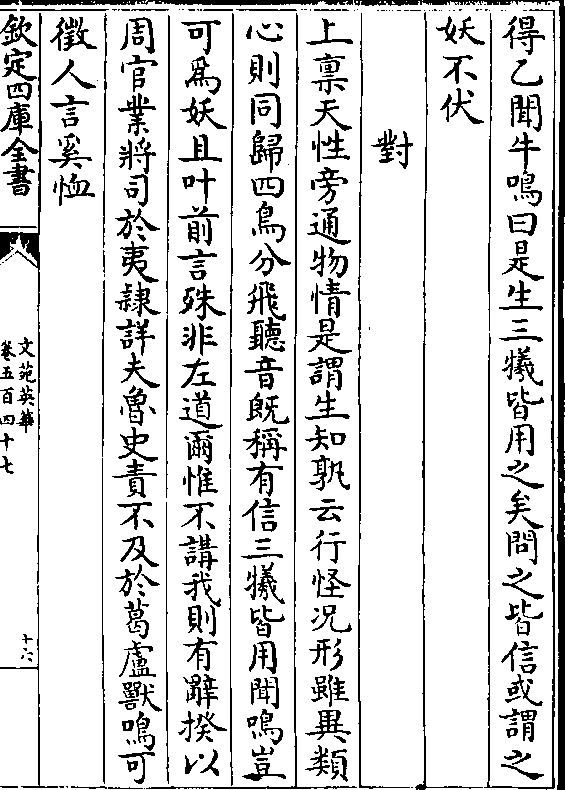 得乙聞牛鳴曰是生三犧皆用之矣問之皆信或謂之
妖不伏
對
上禀天性旁通物情是謂生知孰云行怪况形雖異類
心則同歸四鳥分飛聽音既稱有信三犧皆用聞鳴豈
可爲妖且叶前言殊非左道爾惟不講我則有辭揆以
周官業將司於夷隸詳夫魯史責不及於葛盧獸鳴可
徵人言奚恤
欽定四庫全書
文苑英華
卷五百四十七
十六